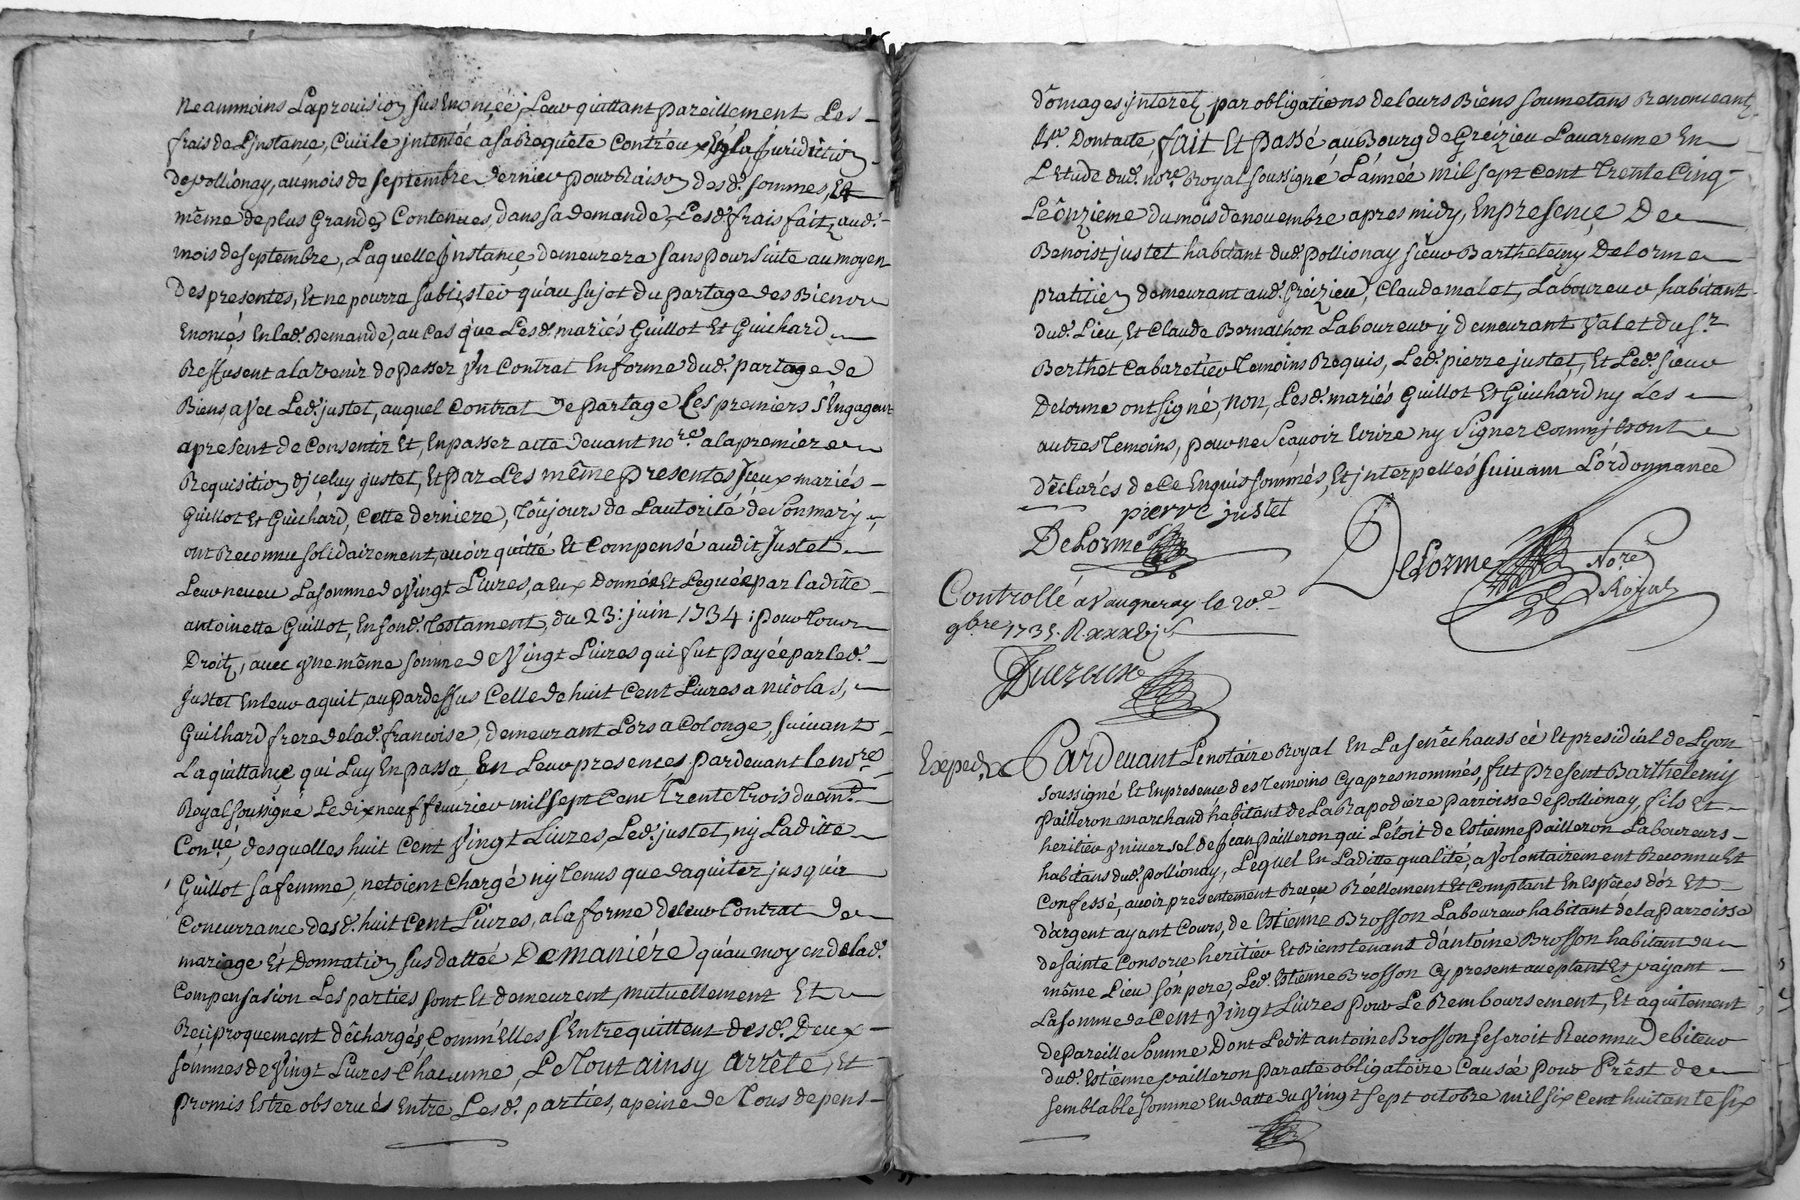 Neanmoins Laprouision sus Enoncée, Leur quittant pareillement Les
frais de L'jnstance, Ciuile jntentée a sa Requête Contr'eux En la Juridiction
de pollionay, au mois de septembre dernier pour Raison desd. sommes, Et
même de plus Grandes Contenues, dans sa demande, Lesd. frais faitz aud.
mois de septembre, Laquelle jnstance demeurera sans poursuite au moyen
Des presentes, Et ne pourra subsister qu'au sujot du partage des Biens
Enoncés En lad. Demande, au cas que Lesd. mariés Guillot Et Guichard
Reffusent a lavenir de passer vn Contrat En forme dud. partage de
Biens, avec Led. justet, auquel Contrat de partage Les premiers s'Engagent
apresent de Consentir Et, En passer acte deuant nore. a la premiere
Requisition d'jceluy justet, Et par Les même presentes jceux mariés
Guillot Et Guichard, Cette derniere, Toûjours de L'autorité de son mary,
ont Reconnu solidairement, auoir quitté Et Compensé audit Justet
Leur neueu La somme de Vingt Liures, a Eux Donnée Et Leguée par la ditte
antoinette Guillot, En son d. Testament, du 23: juin 1734: pour Tous
Droitz, auec vne même somme de Vingt Liures qui fut payée par led.
Justet En leur aquit, au pardessus Celle de huit Cent Liures a nicolas,
Guilhard frere de lad. francoise, demeurant Lors a Colonge, suiuant
La quittance qui Luy En passa, En Leur presences, pardeuant le nore
Royal soussigné Le dix neuf feurier mil sept Cent Trente Trois duemt.
Conllé, desquelles huit Cent Vingt Liures, Led. justet, nij Laditte
Guillot sa femme, netoient Chargé nij Tenus que d'aquiter jusqu'a
Concurrance desd. huit Cent Liures, a la forme de leur Contrat de
mariage Et Donnation sus dattée De maniére qu'au moyen de lad.
Compensasion Les parties sont Et demeurent mutuellement Et
Reciproquement dêchargés, Comm'Elles s'Entrequittent desd. Deux
sommes de Vingt Liures Chacunne, Le Tout ainsy arrêté, Et
promis Estre obserués Entre Lesd. parties, a peine de Tous depens
d'omages jnteretz par obligations de leurs Biens soumetans Renonceant
Dont acte, fait Et passé, au Bourg de Greizieu Lauarenne En
L'Etude dud. nore. Royal soussigné L'année mil sept Cent Trente Cinq
Le ônzieme du mois de nouembre apres midy, En presence De
Benoist justet habitant dud. pollionay sieur Barthelemy Delorme
praticien demeurant aud. Greizieu, Claude malot, Laboureur, habitant
dud. Lieu, Et Claude Bernathon Laboureur ÿ demeurant Valet du sr
Berthet Cabaretier Temoins Requis, Led. pierre justet, Et Led. sieur
Delorme ont signé, non, Lesd. mariés Guillot Et Guichard ny Les
autres Temoins, pour ne sçauoir Ecrire ny signer Comm'jls ont
dêclarés de Ce Enquis sommés, Et jnterpellés suiuant L'ordonnance
pierre justet
DeLorme
DeLorme Nore Royal
Controllé a Vaugneray le 20e
9bre 1735. R. xxx
Expedié Pardeuant Le notaire Royal En La senêchaussée Et presidial de Lyon
soussigné Et En presence des Temoins Cy apres nommés, fut present Barthelemij
pailleron marchand habitant de La Rapodiere parroisse de pollionay, fils Et
heritier vniuersel de jean pailleron qui L'étoit de Estienne pailleron Laboureurs
habitans dud. pollionay, Lequel En Laditte qualité, a Volontairement Reconnu Et
Confessé, auoir presentement Reçeu Réellement Et Comptant En Espêces d'or Et
d'argent ayant Cours, de Estienne Brosson Laboureur habitant de la parroisse
de sainte Consorce heritier Et Bienstenant d'antoine Brosson habitant du
même Lieu son pere, Led. Estienne Brosson Cy present acceptant Et payant
La somme de Cent Vingt Liures pour Le Remboursement, Et aquitement
de pareille somme Dont Ledit antoine Brosson se seroit Reconnu Debiteur
dud. Estienne pailleron par acte obligatoire Causée pour Prêst de
semblable somme En datte du Vingt sept octobre mil six Cent huitante six